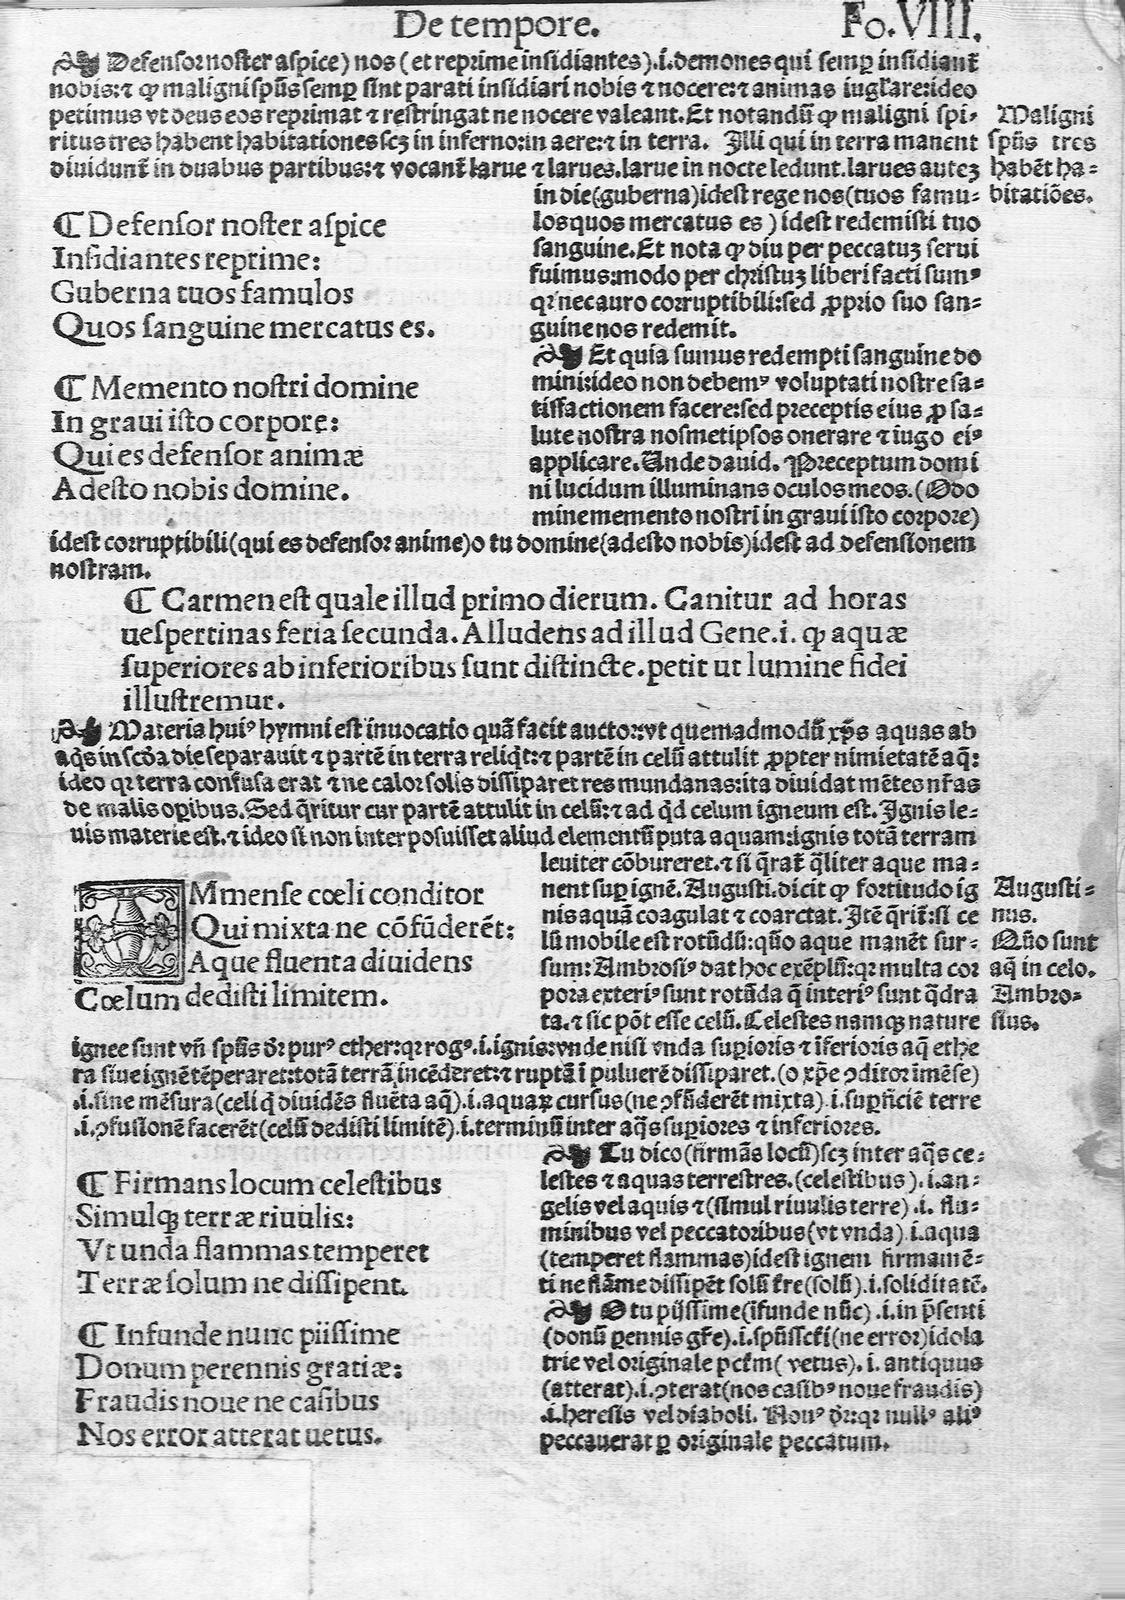 De tempore.
Fo.VIII.
Defensor noster aspice) nos (et reprime insidiantes).i.demones qui semp insidiant̃
nobis:⁊ ꝙ maligni spũs semꝑ sint parati insidiari nobis ⁊ nocere:⁊ animas iugl̃are:ideo
petimus vt deus eos reprimat ⁊ restringat ne nocere valeant. Et notandũ ꝙ maligni spi-
ritus tres habent habitationes scꝫ in inferno:in aere:⁊ in terra. Illi qui in terra manent
diuidunt̃ in duabus partibus:⁊ vocant̃ larue ⁊ larues.larue in nocte ledunt.larues auteꝫ
in die(guberna)idest rege nos(tuos famu-
los quos mercatus es) idest redemisti tuo
sanguine. Et nota ꝙ diu per peccatuꝫ serui
fuimus:modo per christuꝫ liberi facti sumꝰ
qꝛ nec auro corruptibili:sed ꝓprio suo san-
guine nos redemit.
Maligni
spũs tres
habẽt ha-
bitatiões.
¶ Defensor noster aspice
Insidiantes reprime:
Guberna tuos famulos
Quos sanguine mercatus es.
¶ Memento nostri domine
In graui isto corpore:
Qui es defensor animæ
Adesto nobis domine.
Et quia sumus redempti sanguine do
mini:ideo non debemꝰ voluptati nostre sa-
tisfactionem facere:sed preceptis eius ꝓ sa-
lute nostra nosmetipsos onerare ⁊ iugo eiꝰ
applicare. Unde dauid. Preceptum domi
ni lucidum illuminans oculos meos.(O do
mine memento nostri in graui isto corpore)
idest corruptibili(qui es defensor anime)o tu domine(adesto nobis)idest ad defensionem
nostram.
¶ Carmen est quale illud primo dierum. Canitur ad horas
uespertinas feria secunda. Alludens ad illud Gene.i. ꝙ aquæ
superiores ab inferioribus sunt distincte.petit ut lumine fidei
illustremur.
Materia huiꝰ hymni est inuocatio quã facit auctor:vt quemadmodũ xp̃s aquas ab
aq̃s in scđa die separauit ⁊ partẽ in terra reliqt:⁊ partẽ in celũ attulit ꝓpter nimietatẽ aq̃:
ideo qꝛ terra confusa erat ⁊ ne calor solis dissiparet res mundanas:ita diuidat mẽtes nr̃as
de malis opibus. Sed q̃ritur cur partẽ attulit in celũ:⁊ ad q̃d celum igneum est. Ignis le-
uis materie est.⁊ ideo si non interposuisset aliud elementũ puta aquam:ignis totã terram
leuiter cõbureret.⁊ si q̃rat̃ q̃liter aque ma-
nent suꝑ ignẽ. Augusti.dicit ꝙ fortitudo ig
nis aquã coagulat ⁊ coarctat. Itẽ q̃rit̃:si ce
lũ mobile est rotũdũ:quõ aque manẽt sur-
sum:Ambrosiꝰ dat hoc exẽplũ:qꝛ multa cor
pora exteriꝰ sunt rotũda q̃ interiꝰ sunt q̃dra
ta.⁊ sic põt esse celũ. Celestes namqꝫ nature
Augusti-
nus.
Quõ sunt
aq̃ in celo.
Ambro-
sius.
IMmense cœli conditor
Qui mixta ne cõfũderẽt:
Aque fluenta diuidens
Cœlum dedisti limitem.
ignee sunt vñ spũs dr̃ purꝰ ether:qꝛ rogꝰ.i.ignis:vnde nisi vnda suꝑioris ⁊ ĩferioris aq̃ ethe
ra siue ignẽ tẽperaret:totã terrã incẽderet:⁊ ruptã ĩ puluerẽ dissiparet.(o xp̃e ꝯditor ĩmẽse)
.i.sine mẽsura(celi q̃ diuidẽs fluẽta aq̃).i.aquaꝝ cursus(ne ꝯfũderẽt mixta).i.suꝑficiẽ terre
.i.ꝯfusionẽ facerẽt(celũ dedisti limitẽ).i.terminũ inter aq̃s suꝑiores ⁊ inferiores.
Tu dico(firmãs locũ)scꝫ inter aq̃s ce-
lestes ⁊ aquas terrestres.(celestibus).i.an-
gelis vel aquis ⁊(simul riuulis terre).i. flu-
minibus vel peccatoribus(vt vnda).i.aqua
(temperet flammas)idest ignem firmamẽ-
ti ne flãme dissipẽt solũ tr̃e(solũ).i.soliditatẽ.
¶ Firmans locum celestibus
Simulqꝫ terræ riuulis:
Vt unda flammas temperet
Terræ solum ne dissipent.
¶ Infunde nunc piissime
Donum perennis gratiæ:
Fraudis noue ne casibus
Nos error atterat uetus.
O tu pijssime(ĩfunde nũc).i.in p̃senti
(donũ ꝑennis gr̃e).i.spũssct̃i(ne error)idola
trie vel originale pct̃m(vetus).i. antiquus
(atterat).i.ꝯterat(nos casibꝰ noue fraudis)
.i.heresis vel diaboli. Nouꝰ dr̃:qꝛ nullꝰ aliꝰ
peccauerat ꝑ originale peccatum.